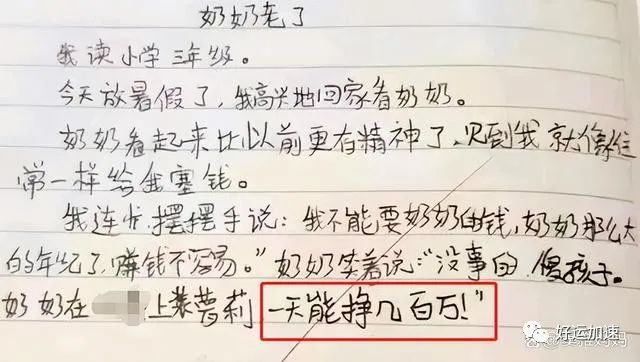 奶奶老了
我读小学三年级。
今天放暑假了，我高兴地回家看奶奶。
奶奶看起来比以前更有精神了，见到我就像往
常一样给我塞钱。
我连忙摆摆手说：我不能要奶奶的钱，奶奶那么大
的年纪了，赚钱不容易。”奶奶笑着说：“没事的，傻孩子。
奶奶在 上装萝莉，一天能挣几百万！”
好运加速